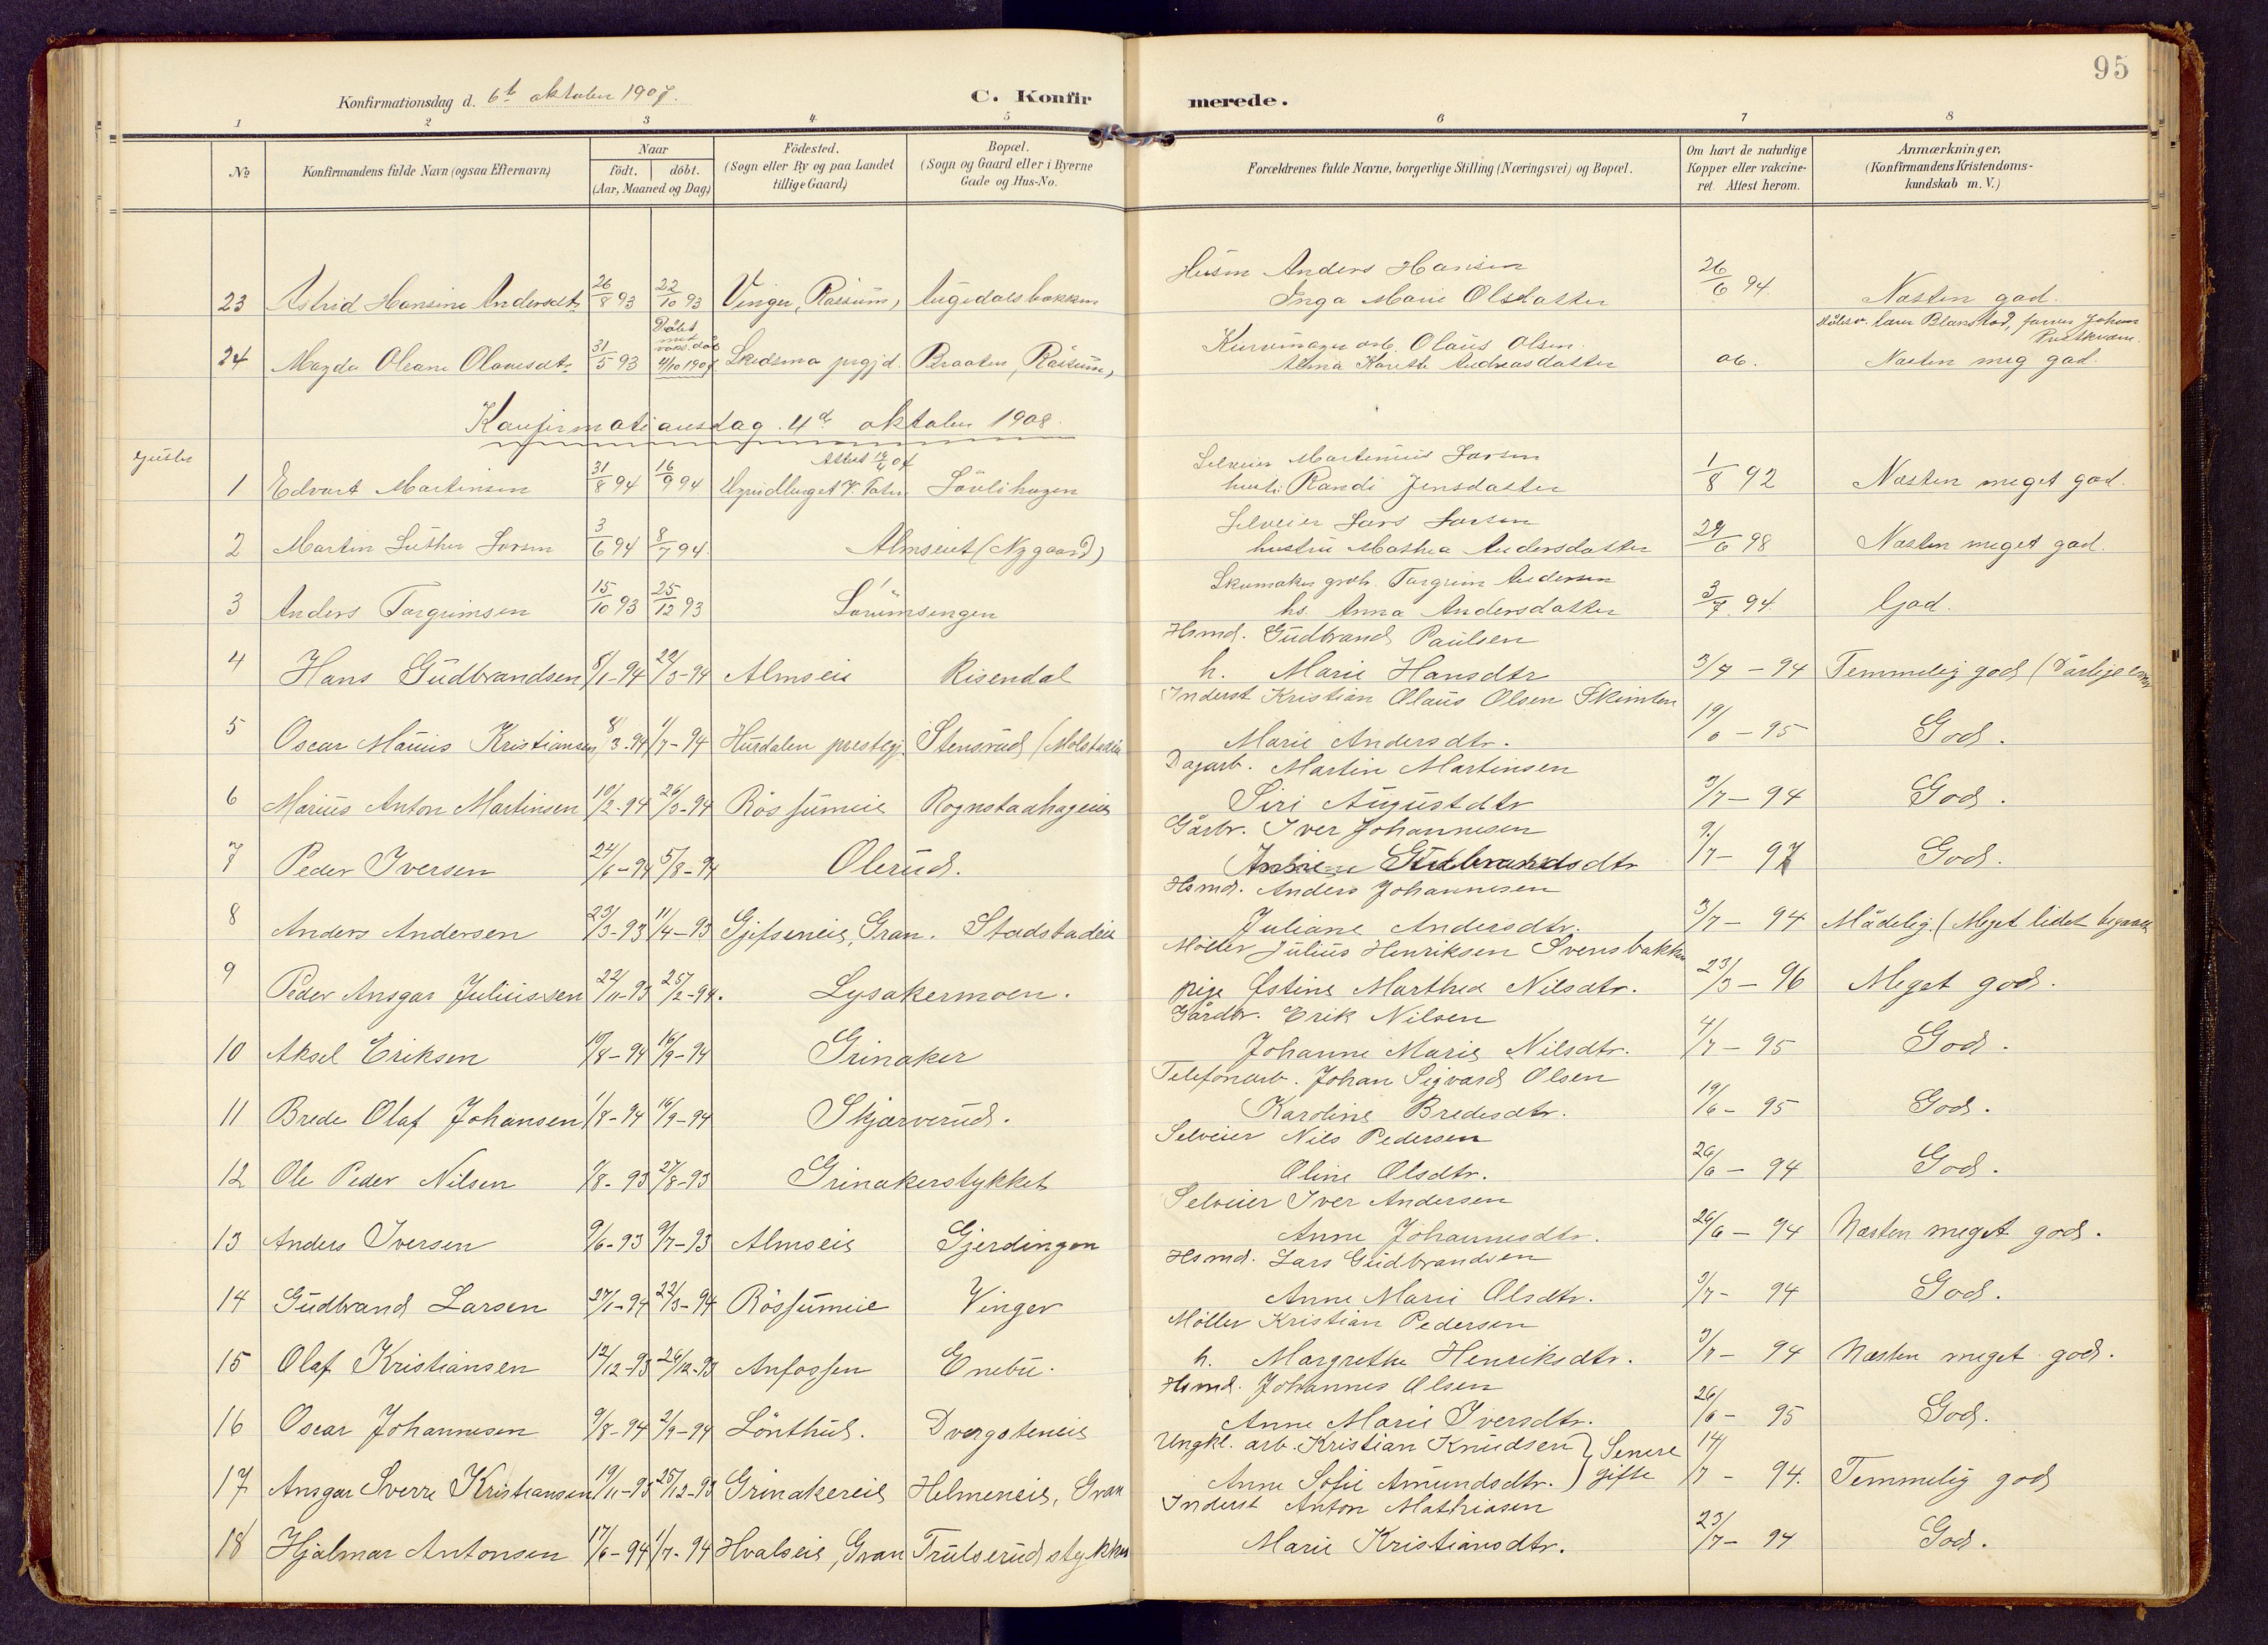 95
Konfirmationsdag d. 6te oktober 1907.
C. Konfirmerede.
1 2 3 4 5 6 7 8
No
Konfirmandens fulde Navn (ogsaa Efternavn)
Naar
födt. döbt.
(Aar, Maaned og Dag)
Födested.
(Sogn eller By og paa Landet
tillige Gaard)
Bopæl.
(Sogn og Gaard eller i Byerne
Gade og Hus-No.
Forældrenes fulde Navne, borgerlige Stilling (Næringsvei) og Bopæl.
Om havt de naturlige
Kopper eller vakcine-
ret Attest herom.
Anmærkninger.
(Konfirmandens Kristendoms-
kundskab m. V.)
Husm Anders Hansen
23 Astrid Hansine Andersdtr 26/8 93 22/10 93 Vinger, Røssum, Augedalsbakken Inga Marie Olsdatter 26/6 94 Næsten god.
Döbt
24 Magda Oleane Olavesdtr 31/5 93 4/10 1907 Skedsmo prgjd. Braaten, Røssum, Olaus Olsen
Andreasdatter Næsten meg god.
Konfirmationsdag 4de oktober 1908.
Selveier Martinius Larsen
1 Edvart Martinsen 31/8 94 16/9 94 Attest hustr Randi Jensdatter 1/8 92 Næsten meget god.
Selveier Lars Larsen
2 Martin Luther Larsen 3/6 94 8/7 94. Almseiet (Nygaard) hustru Mathea Andersdatter 29/6 98 Næsten meget god.
Skomaker Torgrim Andersen
3 Anders Torgrimsen 15/10 93 25/12 93 Sørumsengen hs. Anna Andersdatter 3/7. 94. God.
Hsmd. Gudbrand Paulsen
4 Hans Gudbrandsen 8/1-94 22/3-94 Almseie Risendal h. Marie Hansdtr 3/7 - 94 Temmelig god
Inderst Kristian Olaus Olsen Skimten
5 Oscar Mauris Kristiansen 8/3-94 1/7-94 Hurdalen prestegj. Stensrud Marie Andersdtr. 19/6 - 95 God.
Dagarb. Martin Martinsen
6 Marius Anton Martinsen 10/2-94 26/3-94 Rössumeie Rognstadhageneie Siri Augustdtr 3/7 - 94 God.
Gårbr. Iver Johannesen
7 Peder Iversen 24/6-94 5/8-94 Olerud. Gudbrandsdtr 9/7 - 97 God.
Hsmd. Anders Johannesen
8 Anders Andersen 23/3-93 11/4-93 Gjefseneie, Gran. Stadstadeie Juliane Andersdtr. 3/7 - 94 Mådelig. (Meget lidet begavet
Möller Julius Henriksen Svensbakken
9 Peder Ansgar Juliussen 22/11-93 25/2-94. Lysakermoen. pige Østine Marthea Nilsdtr. 23/3 - 96 Meget god.
Gårdbr. Erik Nilsen
10 Aksel Eriksen 10/8-94 16/9-94 Grinaker Johanne Marie Nilsdtr. 4/7 - 95 God.
Telefonarb. Johan Sigvard Olsen
11 Brede Olaf Johansen 1/8-94 16/9-94 Skjærverud. Karoline Bredesdtr. 19/6 - 95 God.
Selveier Nils Pedersen
12 Ole Peder Nilsen 9/8-93 27/8-93 Grinakerstykket Oline Olsdtr. 26/6 - 94 God.
Selveier Iver Andersen
13 Anders Iversen 9/6-93 9/7-93 Almseie Gjerdingen Anne Johannesdtr. 26/6 - 94 Næsten meget god.
Hsmd. Lars Gudbrandsen
14 Gudbrand Larsen 27/1-94 22/3-94 Rössumeie Vinger Anne Marie Olsdtr. 3/7 - 94 God.
Möller Kristian Pedersen
15 Olaf Kristiansen 12/12-93 26/12-93 Anfossen Enebu. h. Margrethe Henriksdtr. 3/7 - 94 Næsten meget god.
Hsmd. Johannes Olsen
16 Oscar Johannesen 9/8-94 2/9-94 Lönthud. Dvergsteneie Anne Marie Iversdtr. 26/6 - 95 God.
Ungkl. arb. Kristian Knudsen } Senere
17 Ansgar Sverre Kristiansen 19/11-93 25/12-93 Grinakereie Helmeneie, Gran Anne Sofie Amundsdtr. } gifte 14/7 - 94. Temmelig god
Inderst Anton Mathiasen
18 Hjalmar Antonsen 17/6-94 1/7-94 Hvalseie, Gran Trulserudstykket Marie Kristiansdtr. 23/7 - 94 God.